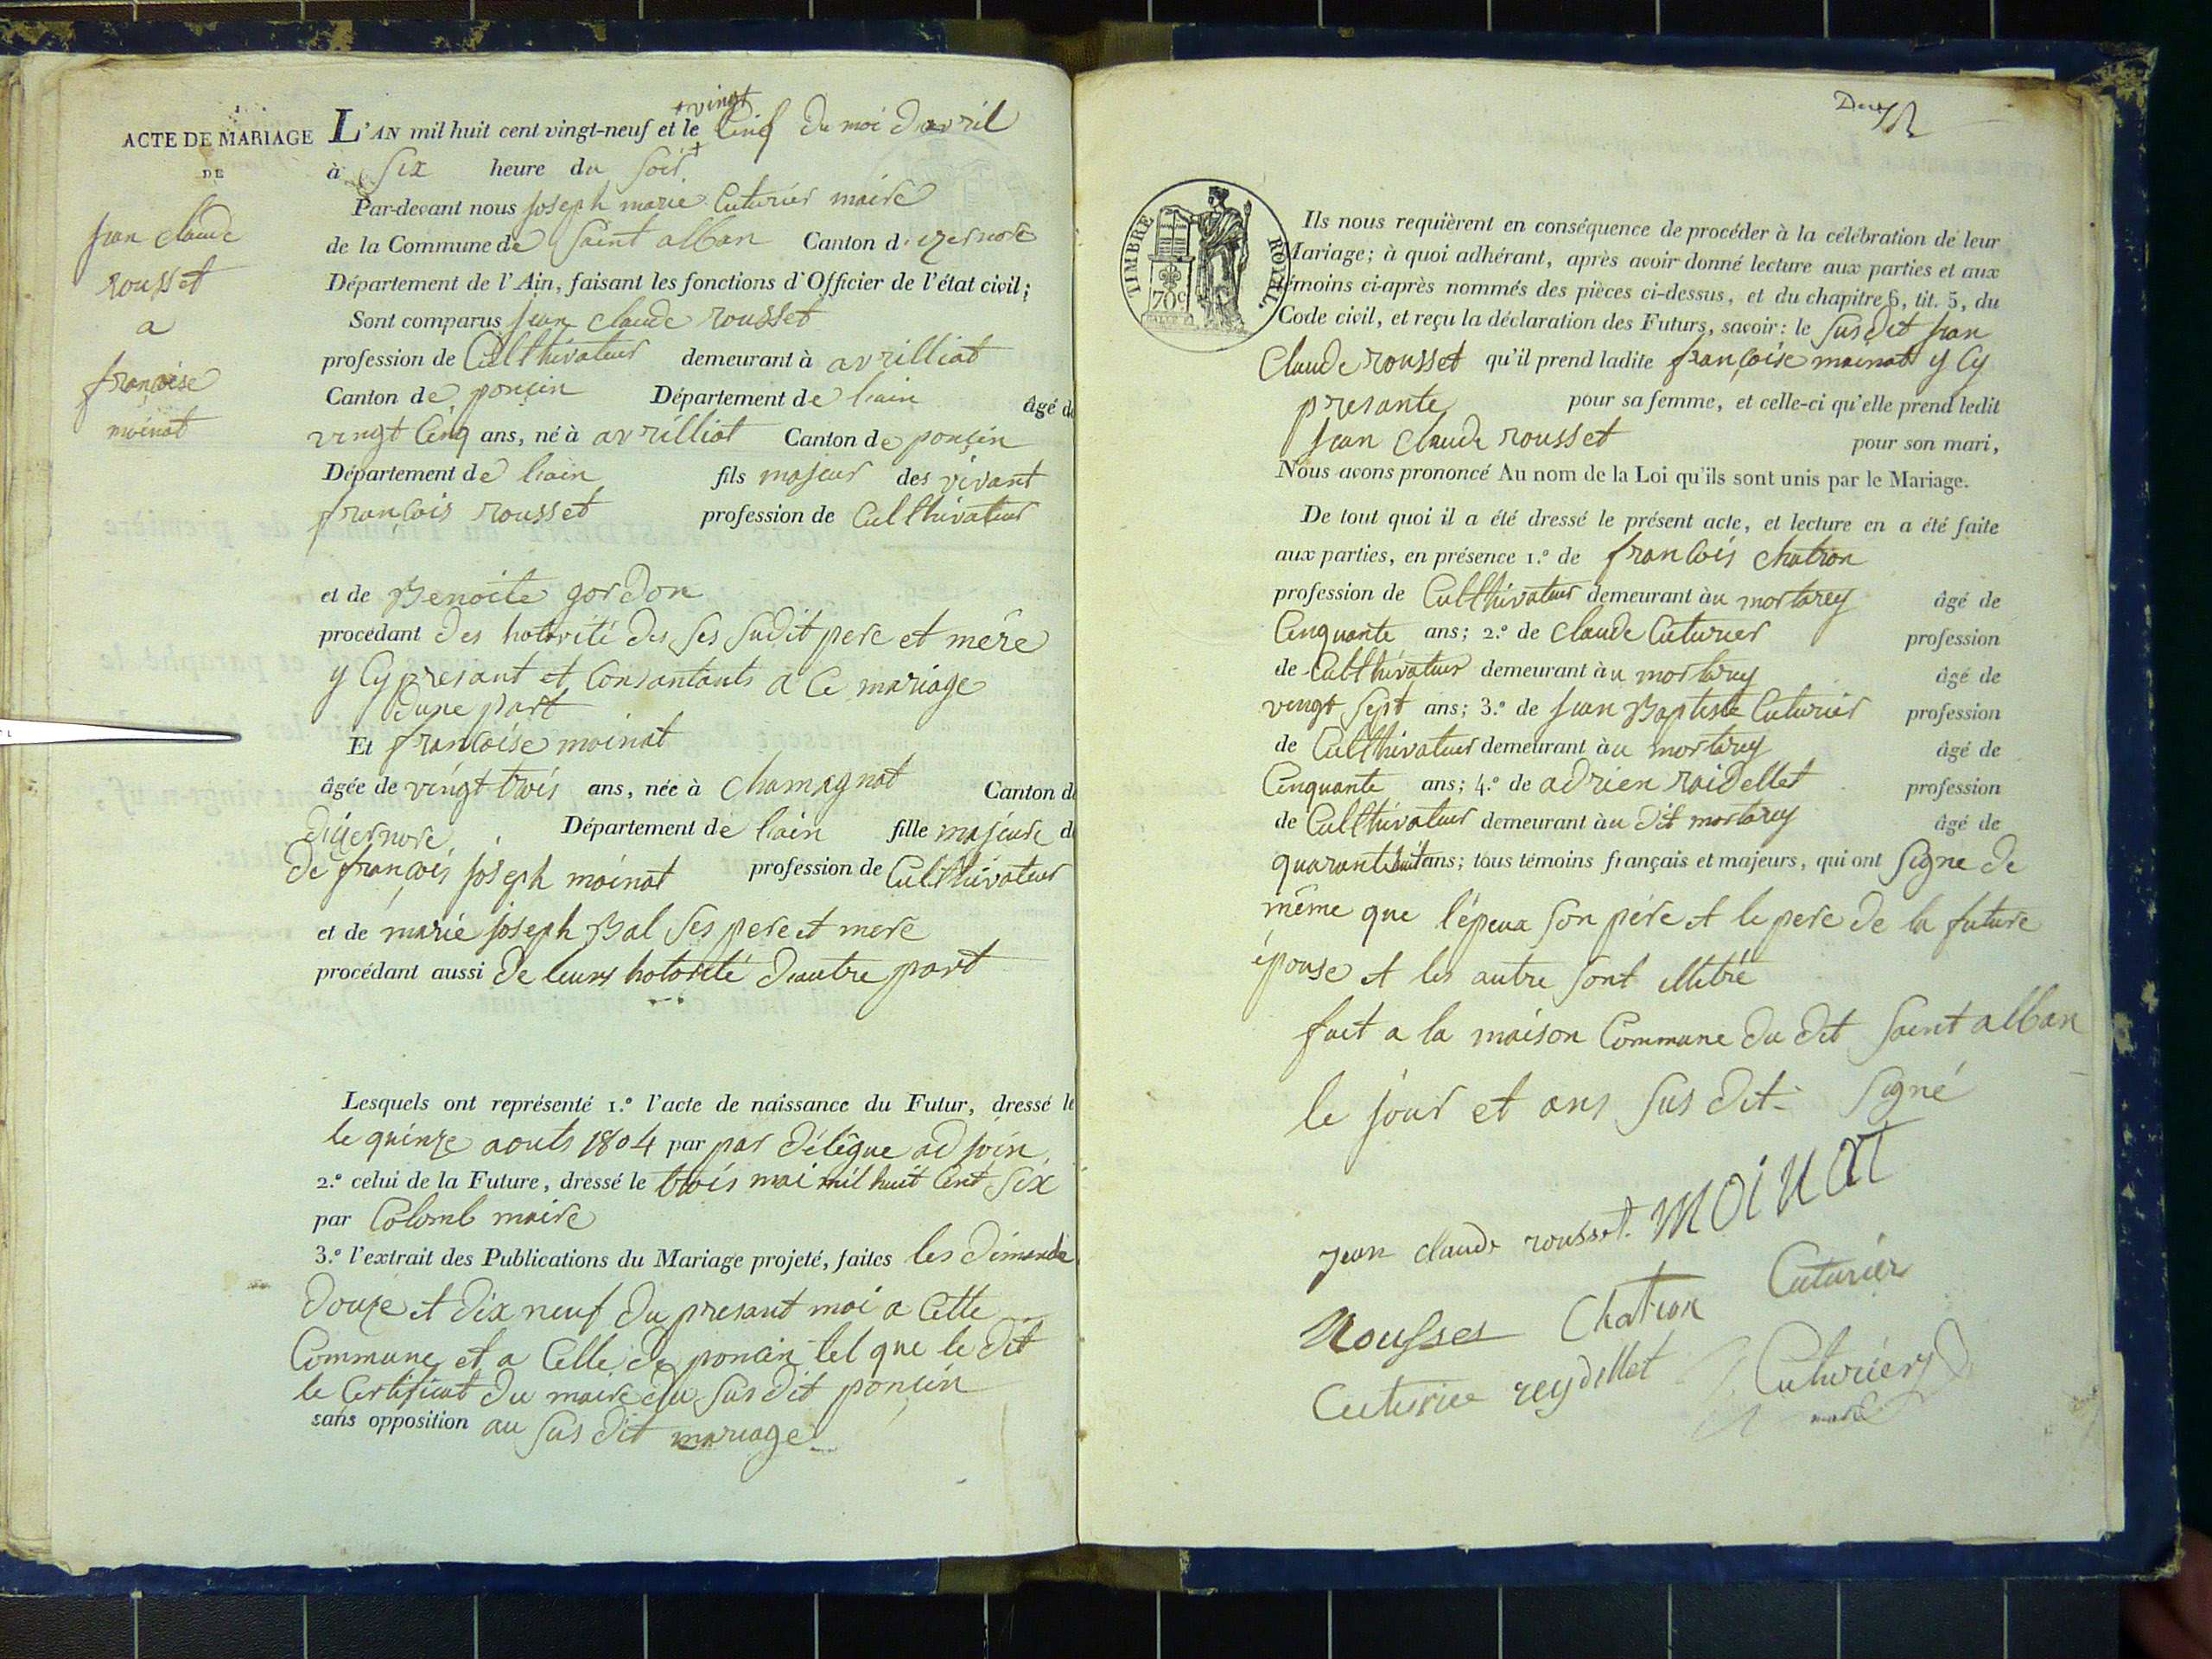 ACTE DE MARIAGE
DE
jean claude
rousset
a
francoise
moinat
+ vingt
L'AN mil huit cent vingt-neuf et le Cinq du moi davril
à Six heure du soir +
Par-devant nous joseph marie Cuturier maire
de la Commune de Saint alban Canton d'izernore
Département de l'Ain, faisant les fonctions d'Officier de l'état civil;
Sont comparus jean claude rousset
profession de Culthivateur demeurant à avrilliat
Canton de ponçin Département de l'ain âgé de
vingt Cinq ans, né à avrilliat Canton de ponçin
Département de l'ain fils majeur des vivant
françois rousset profession de Culthivateur
et de Benoite gordon
procédant des hotorité des ses sudit pere et mère
y Cy presant et Consantants a Ce mariage
dune part
Et francoise moinat
âgée de vingt trois ans, née à chamagnat Canton de
dizernore Département de l'ain fille majeure de
de françois joseph moinat profession de Cultthivateur
et de marie joseph Bal ses pere et mere
procédant aussi de leurs hotorité dautre part
Lesquels ont représenté 1.º l'acte de naissance du Futur, dressé le
le quinze aouts 1804 par par délégue adjoin
2.º celui de la Future, dressé le trois mai mil huit Cent Six
par Colomb maire
3.º l'extrait des Publications du Mariage projeté, faites les dimanche
douze et dix neuf du presant moi a Cette
Commune et a Celle de poncin tel que le dit
le Certificat du maire du susdit ponçin
sans opposition au susdit mariage
Deux
TIMBRE ROYAL
70c
Ils nous requièrent en conséquence de procéder à la célébration de leur
Mariage; à quoi adhérant, après avoir donné lecture aux parties et aux
témoins ci-après nommés des pièces ci-dessus, et du chapitre 6, tit. 5, du
Code civil, et reçu la déclaration des Futurs, savoir: le susdit jean
Claude rousset qu'il prend ladite françoise moinat y Cy
presante pour sa femme, et celle-ci qu'elle prend ledit
jean claude rousset pour son mari,
Nous avons prononcé Au nom de la Loi qu'ils sont unis par le Mariage.
De tout quoi il a été dressé le présent acte, et lecture en a été faite
aux parties, en présence 1.º de francois chatron
profession de Cultthivateur demeurant àu mortarey âgé de
Cinquante ans; 2.º de claude Cuturier profession
de Cultthivateur demeurant àu mortarey âgé de
vingt sept ans; 3.º de jean Baptiste Cuturier profession
de Cultthivateur demeurant àu mortarey âgé de
Cinquante ans; 4.º de adrien raidellet profession
de Cultthivateur demeurant àu dit mortarey âgé de
quarantehuit ans; tous témoins français et majeurs, qui ont signe de
même que l'épeux son pére et le pere de la future
épouse et les autre sont illitré
fait a la maison Commune du dit Saint alban
le jour et ans sus dit signé
jean claude rousset. MOiNAT
Rousset Chatron Cuturier
Cuturier reydellet Cuturier
maire